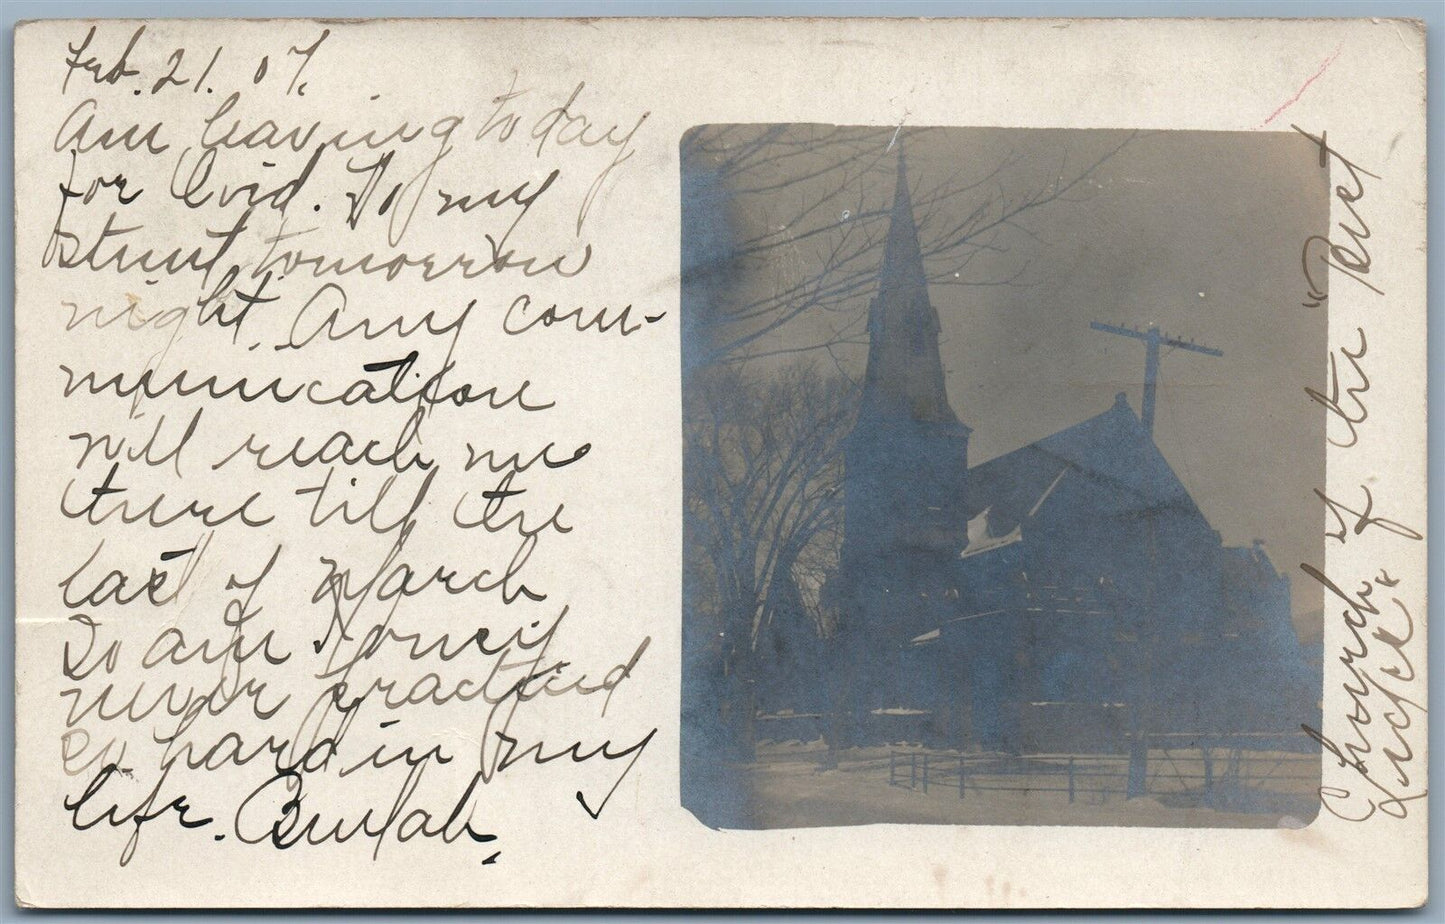 Feb. 21. 07.
Am leaving today
for Ovid. Do my
stunt tomorrow
night. Any com-
munication
will reach me
there till the
last of March
Do aju Honey
never practiced
so hard in my
life. Beulah.
Church of the "Rust
Lickee"